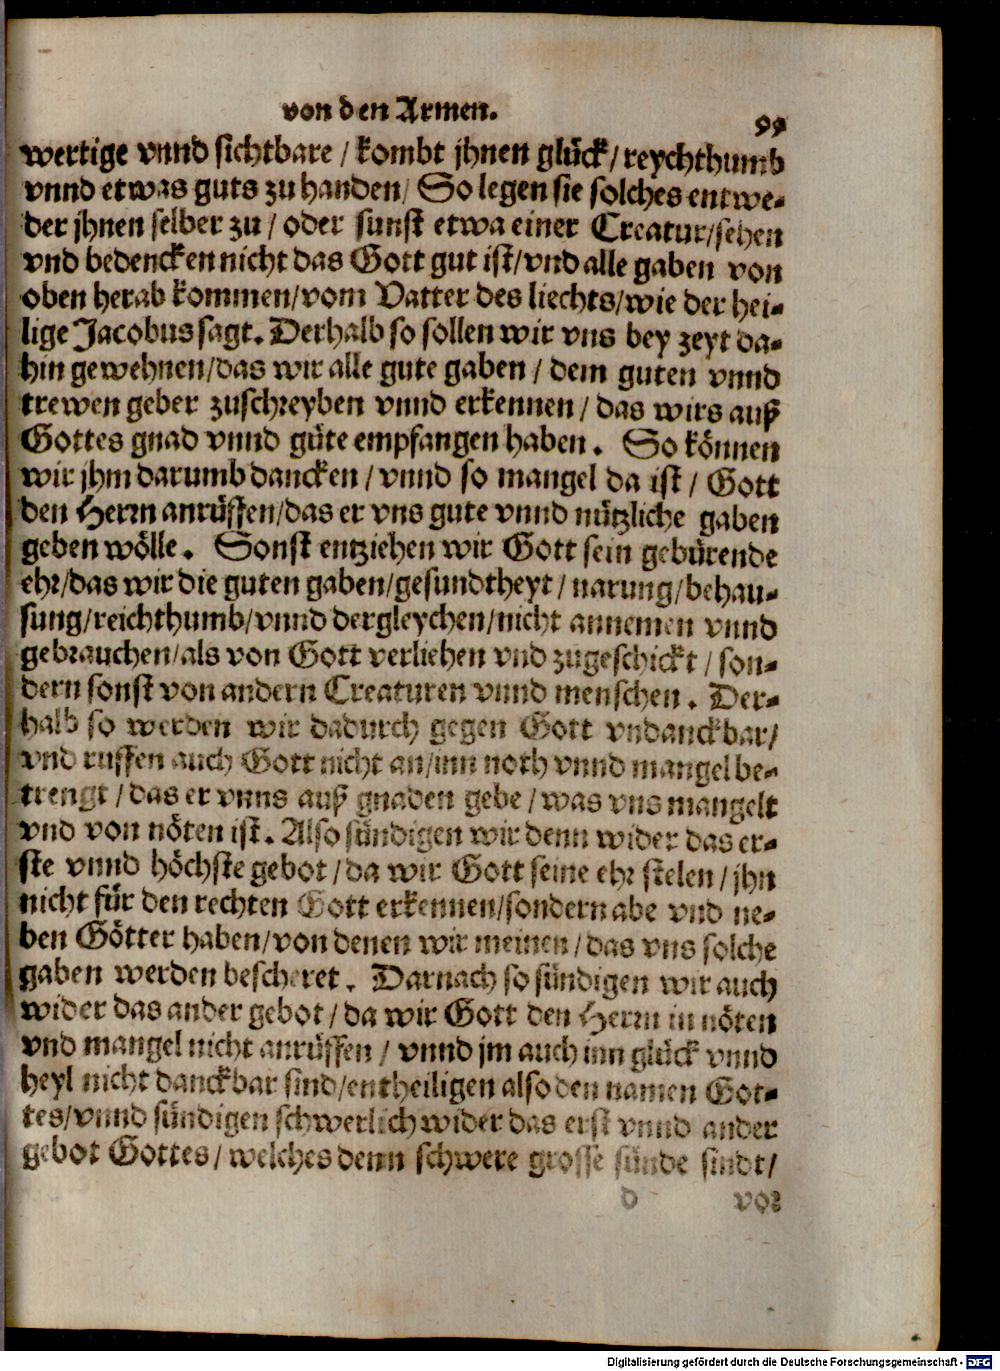 von den Armen.
99
wertige vnnd sichtbare / kombt jhnen glück / reychthumb
vnnd etwas guts zu handen / So legen sie solches entwe-
der jhnen selber zu / oder sunst etwa einer Creatur / sehen
vnd bedencken nicht das Gott gut ist / vnd alle gaben von
oben herab kommen / vom Vatter des liechts / wie der hei-
lige Jacobus sagt. Derhalb so sollen wir vns bey zeyt da-
hin gewehnen / das wir alle gute gaben / dem guten vnnd
trewen geber zuschreyben vnnd erkennen / das wirs auß
Gottes gnad vnnd güte empfangen haben. So können
wir jhm darumb dancken / vnnd so mangel da ist / Gott
den Herrn anrüffen / das er vns gute vnnd nützliche gaben
geben wölle. Sonst entziehen wir Gott sein gebürende
ehr / das wir die guten gaben / gesundtheyt / narung / behau-
sung / reichthumb / vnnd dergleychen / nicht annemen vnnd
gebrauchen / als von Gott verliehen vnd zugeschickt / son-
dern sonst von andern Creaturen vnnd menschen. Der-
halb so werden wir dadurch gegen Gott vndanckbar /
vnd ruffen auch Gott nicht an / inn noth vnnd mangel be-
trengt / das er vnns auß gnaden gebe / was vns mangelt
vnd von nöten ist. Also sündigen wir denn wider das er-
ste vnnd höchste gebot / da wir Gott seine ehr stelen / jhn
nicht für den rechten Gott erkennen / sondern abe vnd ne-
ben Götter haben / von denen wir meinen / das vns solche
gaben werden bescheret. Darnach so sündigen wir auch
wider das ander gebot / da wir Gott den Herrn in nöten
vnd mangel nicht anrüffen / vnnd jm auch inn glück vnnd
heyl nicht danckbar sind / entheiligen also den namen Got-
tes / vnnd sündigen schwerlich wider das erst vnnd ander
gebot Gottes / welches denn schwere grosse sünde sindt /
d
vor
Digitalisierung gefördert durch die Deutsche Forschungsgemeinschaft - DFG